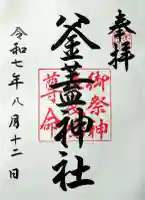 奉拝
釜蓋神社
御祭神
尊命
令和七年八月十二日